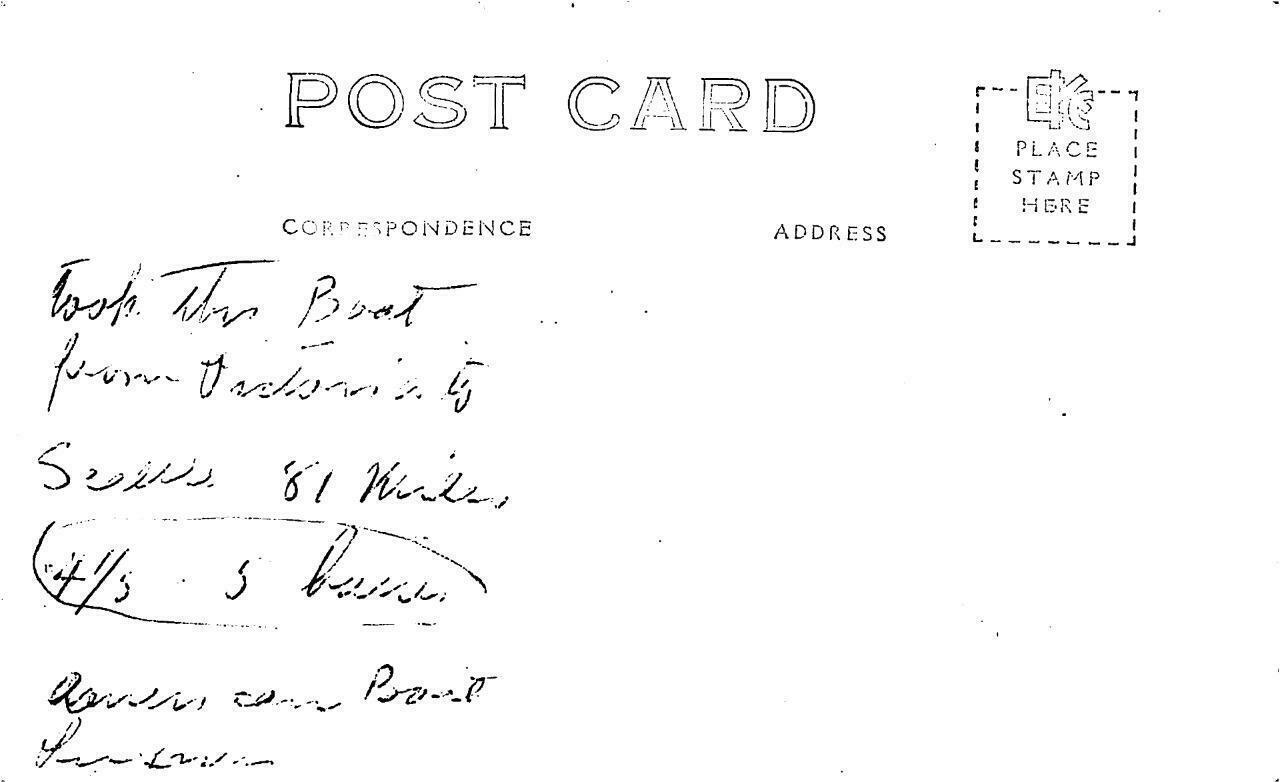 POST CARD
EKC
PLACE
STAMP
HERE
CORRESPONDENCE
ADDRESS
Took this Boat
from Victoria to
81 Miles
5 hours
Boat